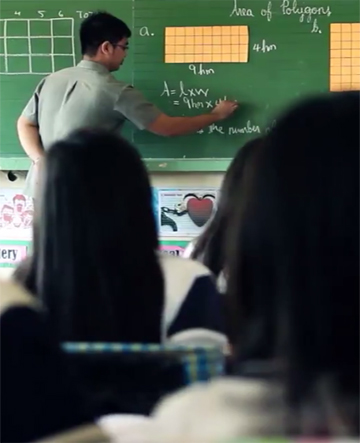 4 5 6 Tot
Area of Polygons
a.
b.
4hm
9hm
A = l x w
= 9hm x 4
the number of
ery